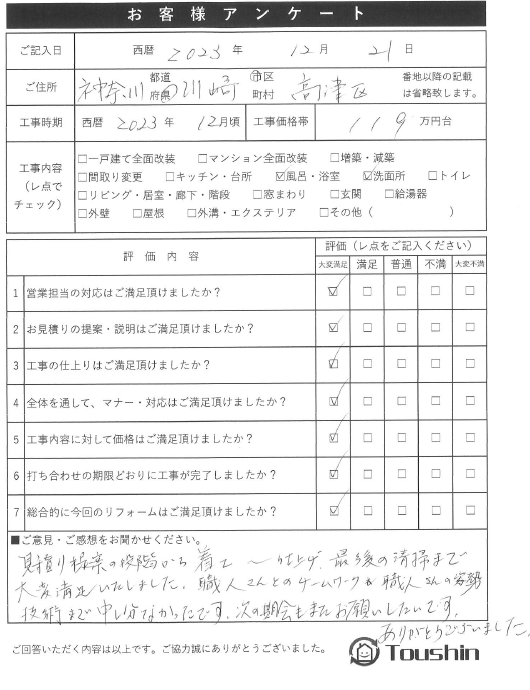 お客様アンケート
ご記入日 西暦 2023 年 12 月 21 日
ご住所 神奈川 都道府県 川崎 市区町村 高津区 番地以降の記載は省略致します。
工事時期 西暦 2023 年 12 月頃 工事価格帯 119 万円台
工事内容（レ点でチェック）
□一戸建て全面改装 □マンション全面改装 □増築・減築
□間取り変更 □キッチン・台所 ☑風呂・浴室 ☑洗面所 □トイレ
□リビング・居室・廊下・階段 □窓まわり □玄関 □給湯器
□外壁 □屋根 □外溝・エクステリア □その他（ ）
評価内容 評価（レ点をご記入ください）
大変満足 満足 普通 不満 大変不満
1 営業担当の対応はご満足頂けましたか？ ☑ □ □ □ □
2 お見積りの提案・説明はご満足頂けましたか？ ☑ □ □ □ □
3 工事の仕上りはご満足頂けましたか？ ☑ □ □ □ □
4 全体を通して、マナー・対応はご満足頂けましたか？ ☑ □ □ □ □
5 工事内容に対して価格はご満足頂けましたか？ ☑ □ □ □ □
6 打ち合わせの期限どおりに工事が完了しましたか？ ☑ □ □ □ □
7 総合的に今回のリフォームはご満足頂けましたか？ ☑ □ □ □ □
■ご意見・ご感想をお聞かせください。
見積り提案の段階から着工〜仕上げ、最後の清掃まで
大変満足いたしました。職人さんとのチームワークも職人さんの姿勢
技術まで申し分なかったです。次の機会もまたお願いしたいです。
ありがとうございました。
ご回答いただく内容は以上です。ご協力誠にありがとうございました。
Toushin